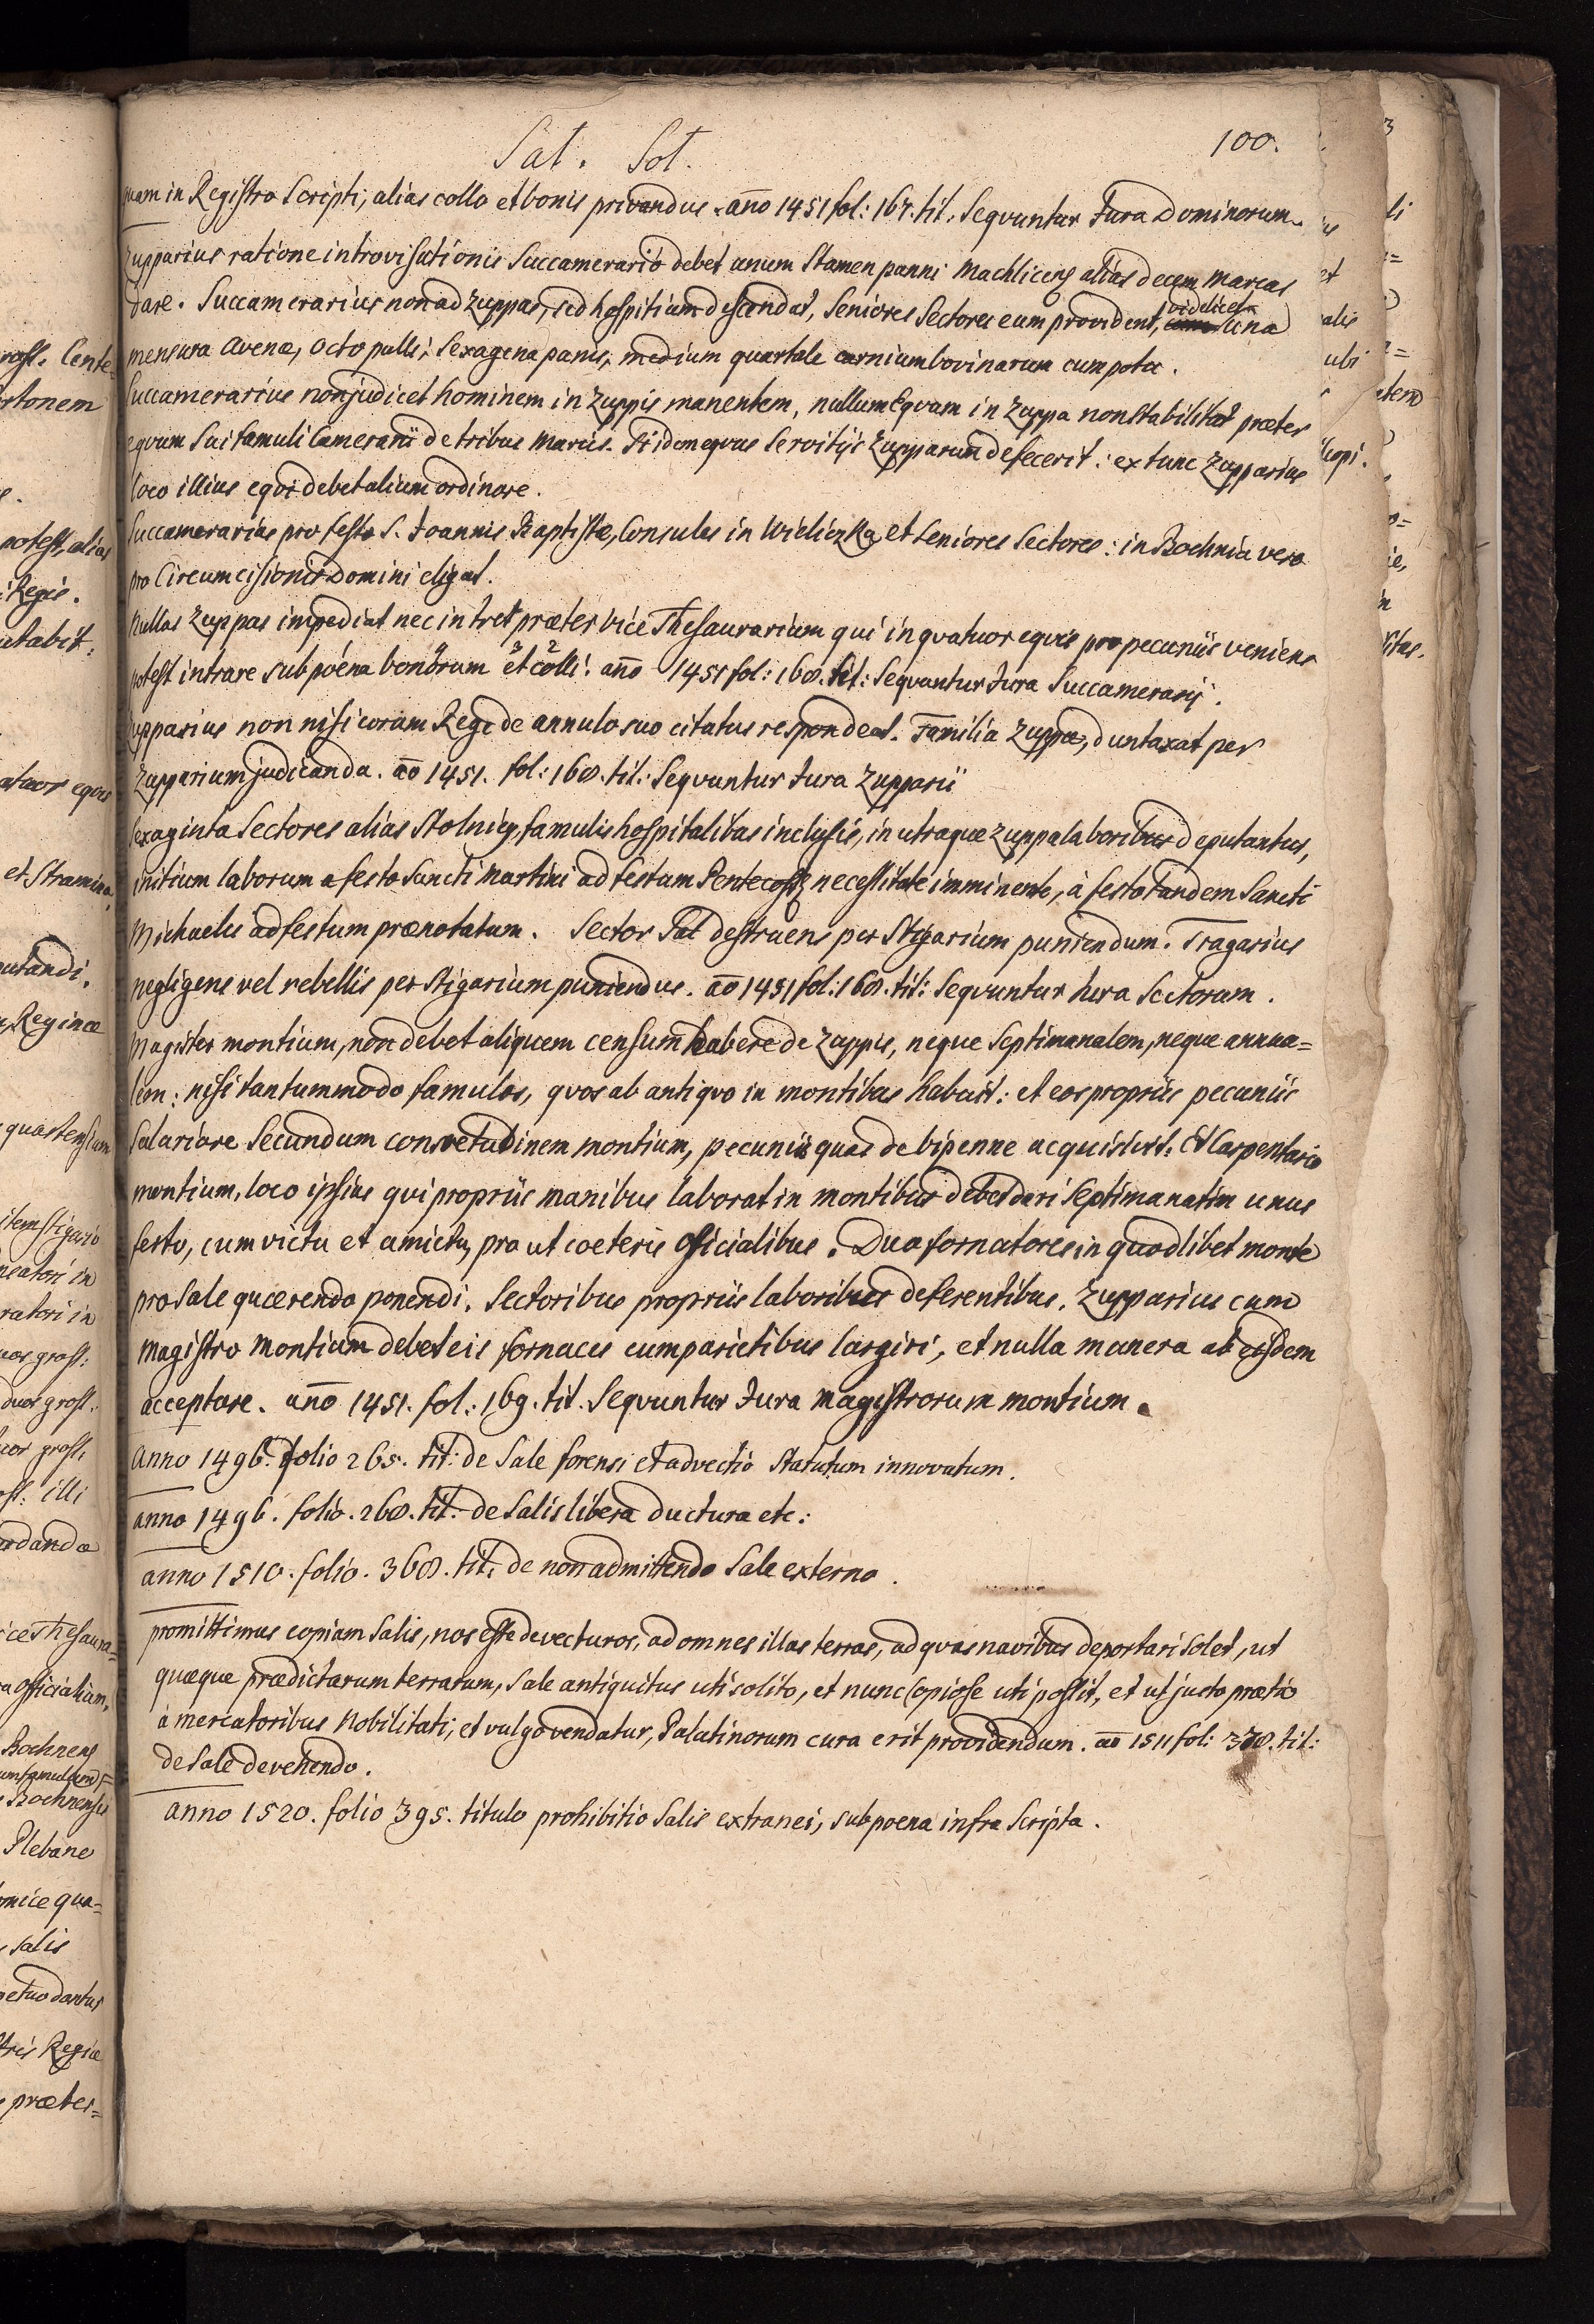 Sal. Sol.
100.
quam in Registro Scripti, alias collo et bonis privandus. año 1451 fol: 167. tit. Seqvuntur Jura Dominorum.
Zupparius ratione introvisutionis Succamerario debet unum Stamen panni Machlicens alias decem Marcas
dare. Succamerarius non ad Zuppas, sed hospitium descendat, Seniores Sectores eum provident, videlicet una
mensura Avenæ, octo pulli, Sexagena panis, medium quartale carnium bovinarum cum potu.
Succamerarius non judicet hominem in Zuppis manentem, nullum Eqvum in Zuppa non Stabilitat præter
eqvum Sui famuli Camerarii de tribus Marcis. Si idem eqvus Servitijs Zupparum defecerit: ex tunc Zupparius
loco illius eqvi debet alium ordinare.
Succamerarius pro festo S. Joannis Baptistæ, Consules in Wieliczka, et Seniores Sectores: in Bochnia vero
pro Circumcisionis Domini eligat.
Nullas Zuppas impediat nec intret præter vice Thesaurarium qui in qvatuor eqvis pro pecuniis veniens
potest intrare sub poena bonorum et colli. año 1451 fol: 168. tit: Seqvuntur Jura Succamerarij.
Zupparius non nisi coram Rege de annulo suo citatus respondeat. Familia Zuppæ, duntaxat per
Zupparium judicanda. ao 1451. fol: 168. tit: Seqvuntur Jura Zupparii
Sexaginta Sectores alias Stolnicy, famulis hospitalibus inclusis, in utraque Zuppa laboribus deputantur,
initium laborum a festo Sancti Martini ad festum Pentecostes necessitate imminente, à festo tandem Sancti
Michaelis ad festum prænotatum. Sector Sal destruens per Stigarium puniendum. Tragarius
negligens vel rebellis per Stigarium puniendus. ao 1451 fol: 168. tit: Seqvuntur Jura Sectorum.
Magister montium, non debet aliquem censum habere de Zuppis, neque Septimanalem, neque annua=
lem: nisi tantummodo famulos, qvos ab antiqvo in montibus habuit: et eos propriis pecuniis
Salariare Secundum consvetudinem montium, pecuniis quas de bipenne acquisivit. Et Carpentario
montium, loco ipsius qvi propriis manibus laborat in montibus debet dari Septimanatim unus
ferto, cum victu et amictu, pro ut coeteris Officialibus. Duo fornatores in quodlibet monte
pro Sale quærendo ponendi. Sectoribus propriis laboribus deferentibus. Zupparius cum
Magistro Montium debet eis fornaces cum parietibus largiri, et nulla munera ab eisdem
acceptare. año 1451. fol: 169. tit. Seqvuntur Jura Magistrorum montium.
Anno 1496. folio 265. tit: de Sale forensi et advectio Statutum innovatum.
anno 1496. folio. 268. tit: de Salis libera ductura etc:
anno 1510. folio. 368. tit. de non admittendo Sale externo.
promittimus copiam Salis, nos esse devecturos, ad omnes illas terras, ad qvas navibus deportari Solet, ut
quæque prædictarum terrarum, Sale antiquitus uti solito, et nunc copiose uti possit, et ut justo prætio
à mercatoribus Nobilitati, et vulgo vendatur, Palatinorum cura erit providendum. ao 1511 fol: 378. tit:
de Sale devehendo.
anno 1520. folio 395. titulo prohibitio Salis extranei, sub poena infra Scripta.